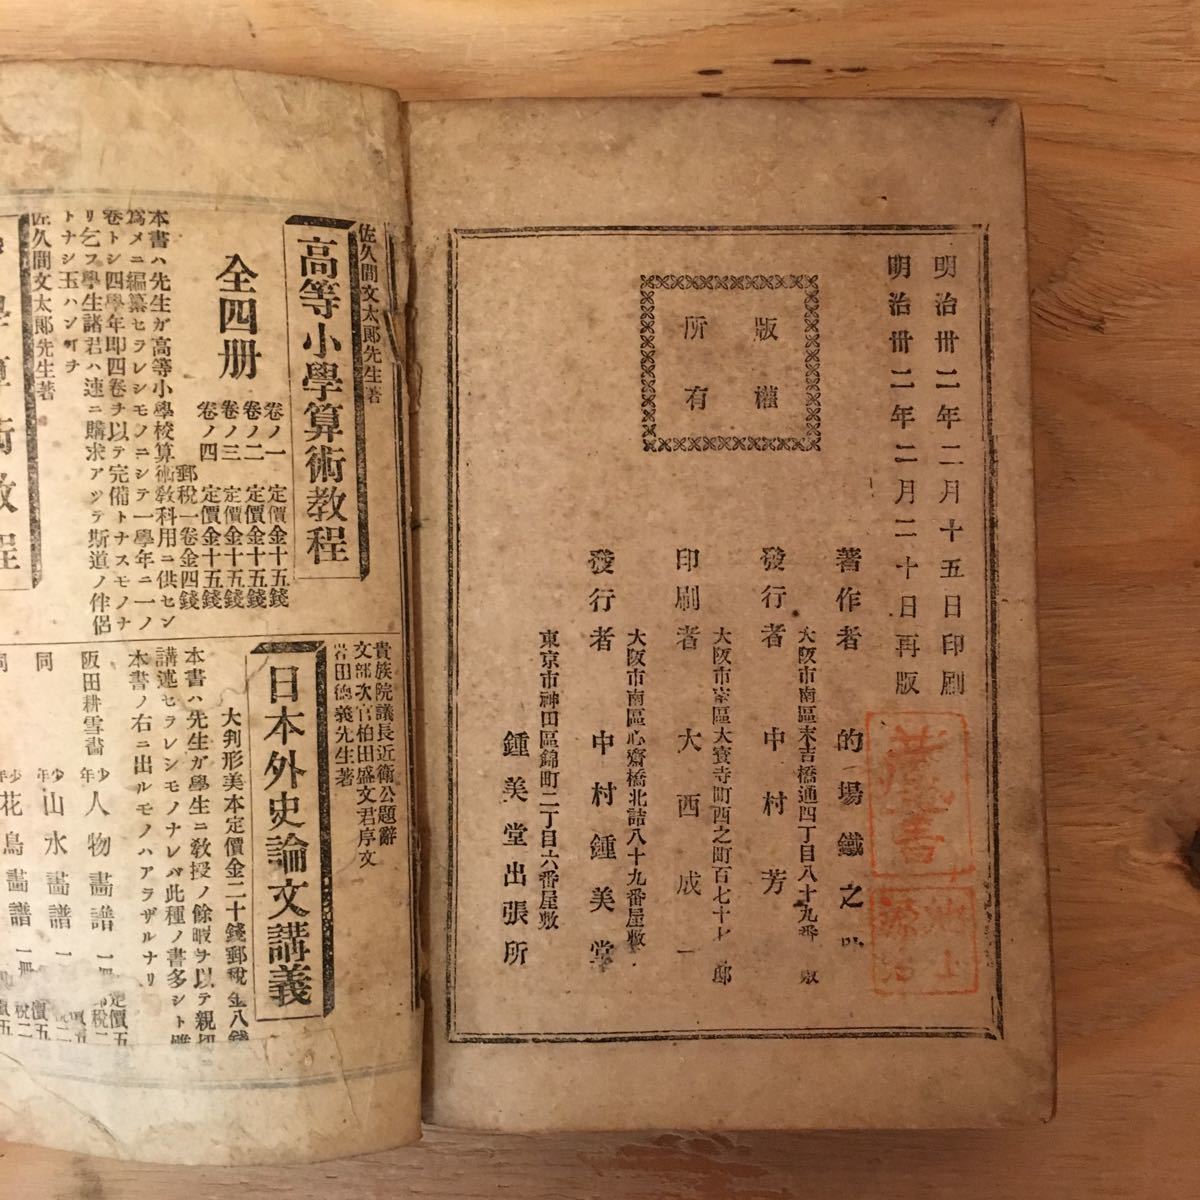 明治卅二年二月十五日印刷
明治卅二年二月二十日再版
版權
所有
著作者 的場鐵之
大阪市南區末吉橋通四丁目八十九番
發行者 中村芳
大阪市南區大寳寺町西之町百七十七
印刷者 大西成一
大阪市南區心齋橋北詰八十九番屋敷
發行者 中村鍾美堂
東京市神田區錦町二丁目六番屋敷
鍾美堂出張所
藏書
佐久間文太郎先生著
高等小學算術教程
全四册
卷ノ一 定價金十五錢
卷ノ二 定價金十五錢
卷ノ三 定價金十五錢
卷ノ四 定價金十五錢
郵税一卷金四錢
本書ハ先生ガ高等小學校算術敎科用ニ供セン
爲メニ編纂セラレシモノニシテ一學年ニ一ノ
卷トシ四學年即四卷ヲ以テ完備トナスモノナ
リ乞フ學生諸君ハ速ニ購求アツテ斯道ノ伴侶
トナシ玉ハンヿヲ
佐久間文太郎先生著
學算術教程
貴族院議長近衛公題辭
文部次官柏田盛文君序文
岩田德義先生著
日本外史論文講義
大判形美本定價金二十錢郵税金八錢
本書ハ先生ガ學生ニ敎授ノ餘暇ヲ以テ親切
講述セラレシモノナレバ此種ノ書多シト雖
本書ノ右ニ出ルモノハアラザルナリ
阪田耕雪書 少年人物畵譜 一冊 定價五 郵税二
同 少年山水畵譜 一 價五 税二
同 少年花鳥畵譜 一冊 價五 税二